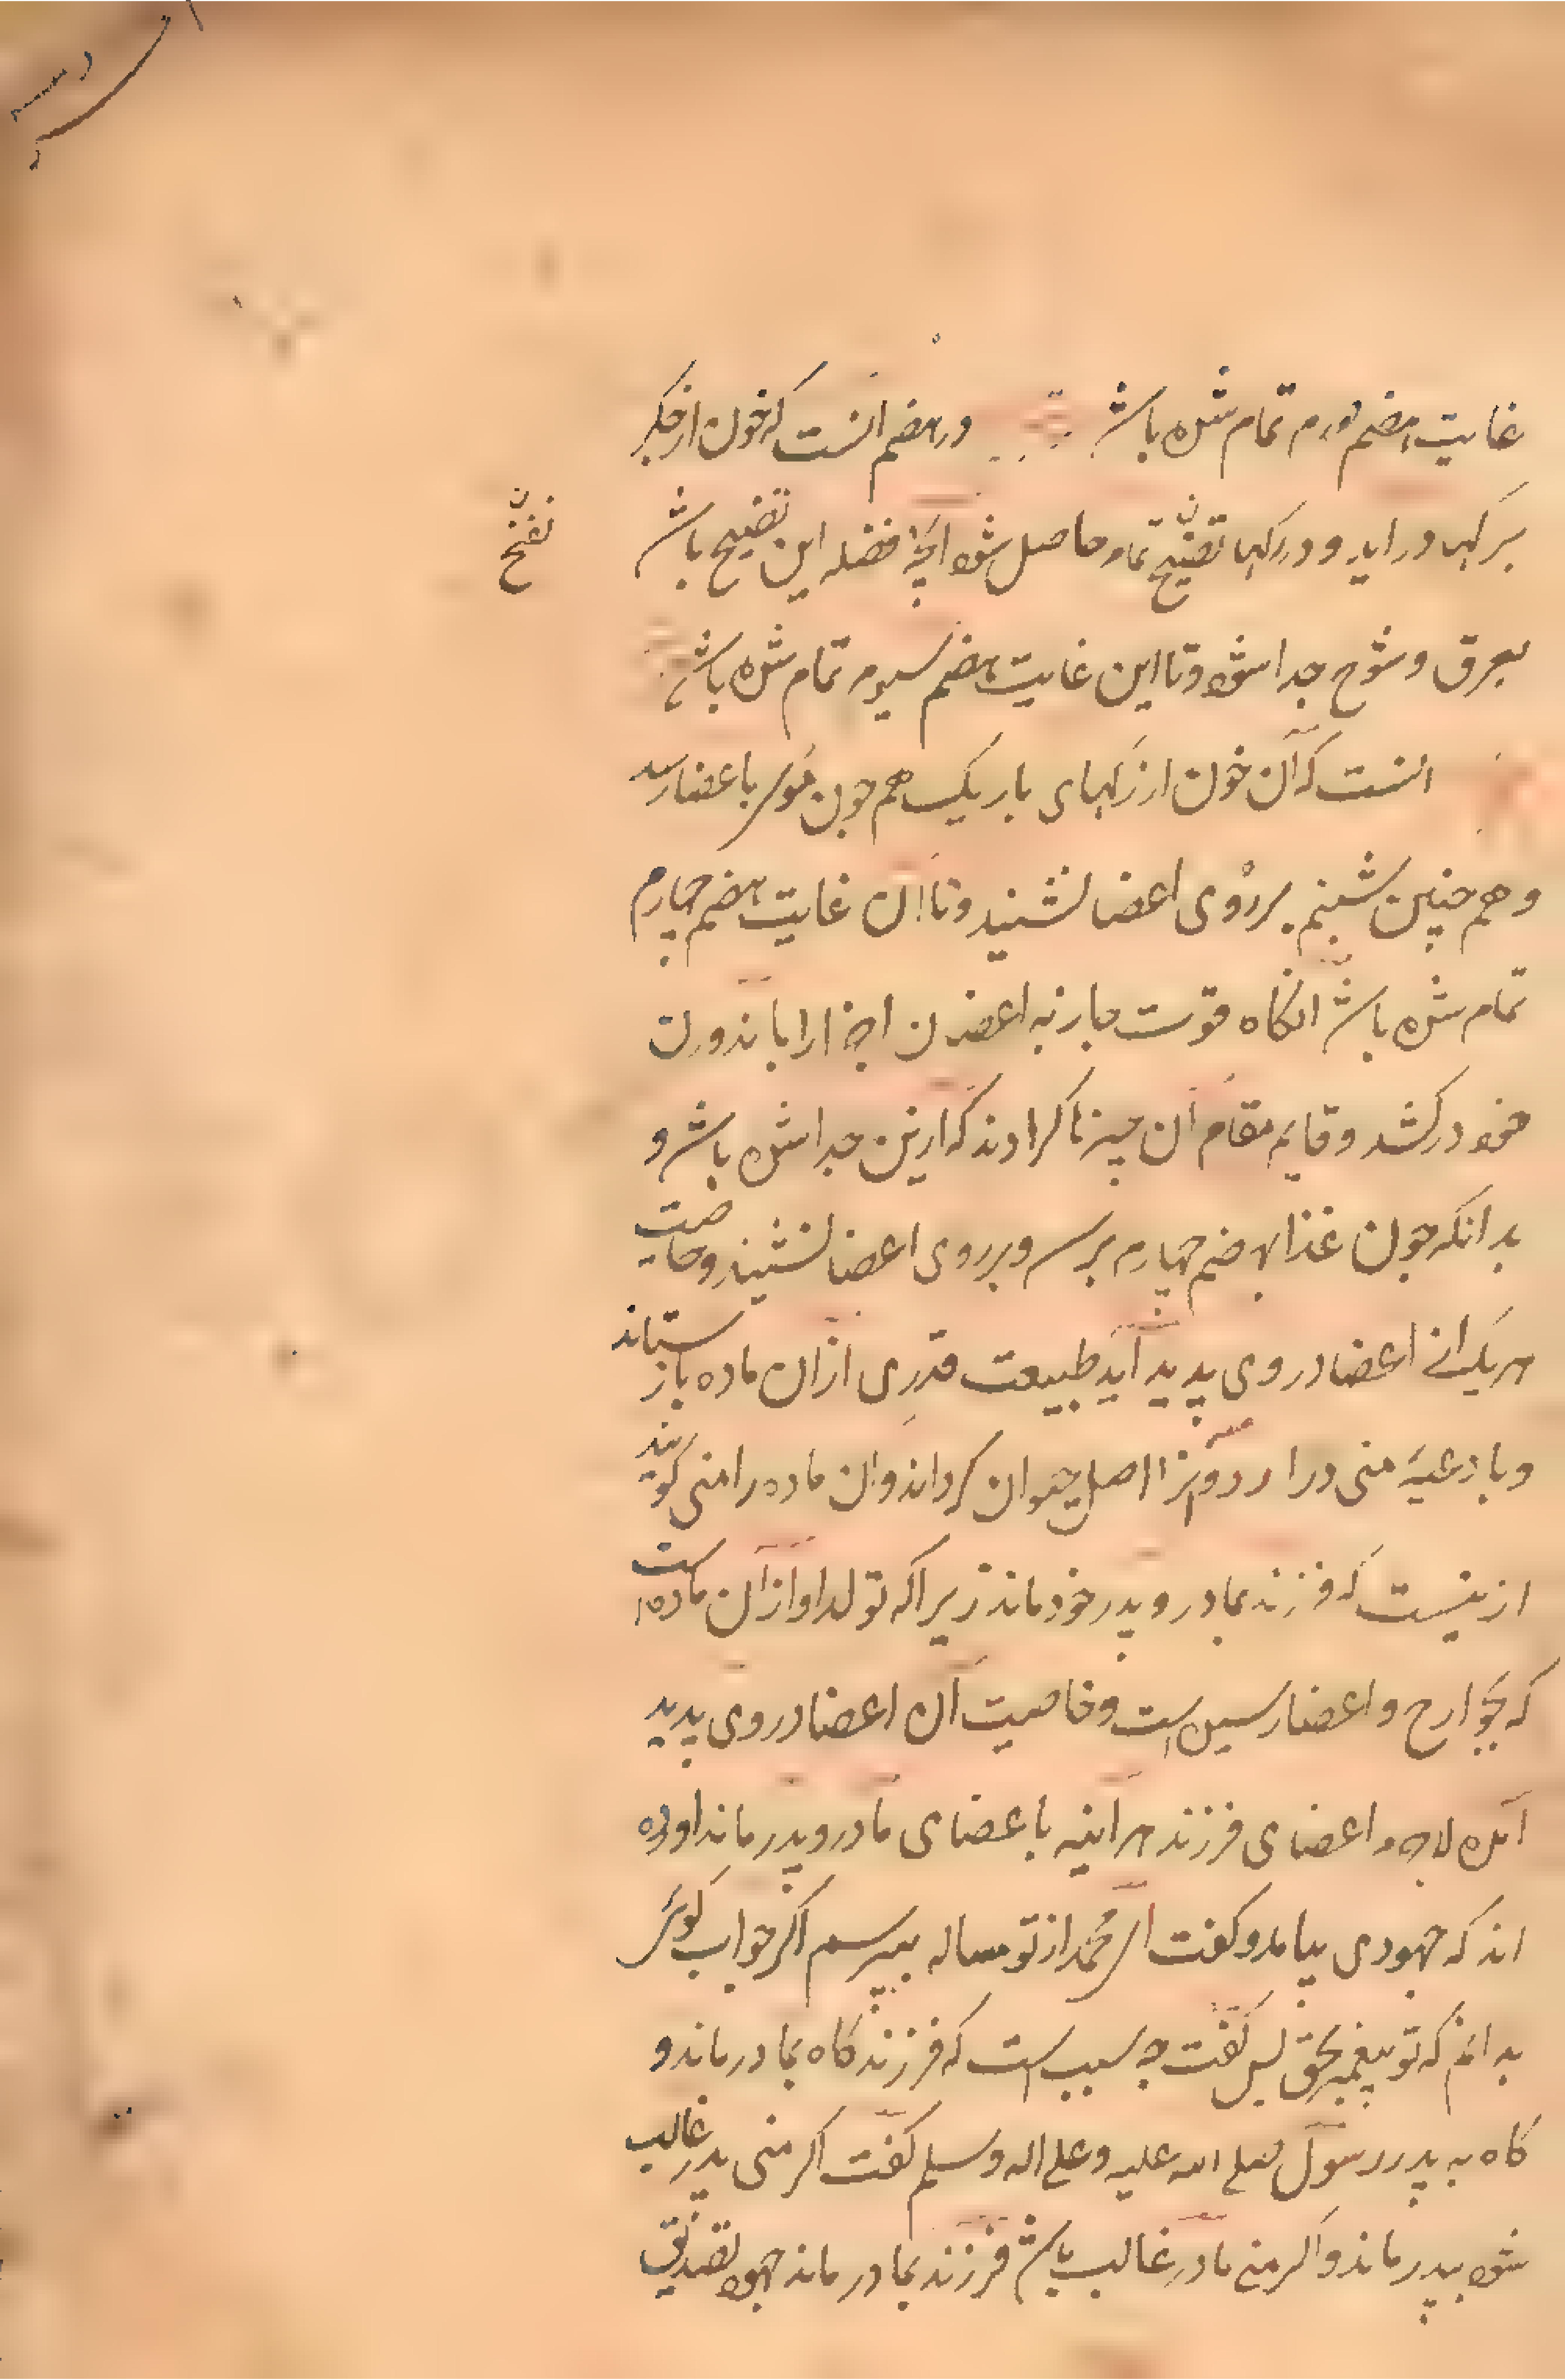 غایت هضم دوم تمام شده باشد و هضم انست که خون از جکر
برکها در اید و در رکها نضج تمام حاصل شود انچه فضله این نضج باشد
نضج
بعرق و شوخ جدا شود و تا این غایت هضم سیوم تمام شده باشد
انست که آن خون از رکهای باریک هم چون موی باعضا رسد
و هم چنین شبنم بر روی اعضا نشیند و تا ان غایت هضم چهارم
تمام شده باشد انکاه قوت جاذبه اعضا ان اجزا را باندرون
خود درکشد و قایم مقام آن چیزها کرداند که ازین جدا شده باشد و
بدانکه چون غذا بهضم چهارم برسد و بر روی اعضا نشیند و خاصیت
هر یک از اعضا در وی پدید آید طبیعت قدری از ان ماده باز ستاند
و باوعیهٔ منی درآرد و آنرا اصل حیوان کرداند و ان ماده را منی کویند
ازینست که فرزند بمادر و پدر خود ماند زیرا که تولد او از آن ماده است
که بجوارح و اعضا رسیده است و خاصیت آن اعضا در وی پدید
آمده لاجرم اعضای فرزند هر اینه باعضای مادر و پدر ماند اورده
اند که جهودی بیامد و کفت ای محمد از تو مساله بپرسم اکر جواب کوی
بدانم که تو پیغمبر بحقی پس کفت چه سبب است که فرزند کاه بمادر ماند و
کاه به پدر رسول صلی الله علیه و علی اله و سلم کفت اکر منی پدر غالب
شود بپدر ماند و اکر منی مادر غالب باشد فرزند بمادر ماند جهود تصدیق